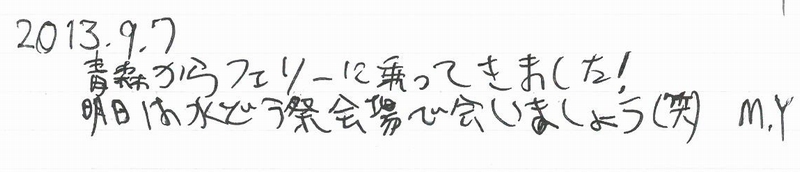 2013.9.7
青森からフェリーに乗ってきました!
明日は水どう祭会場で会いましょう(笑) M.Y